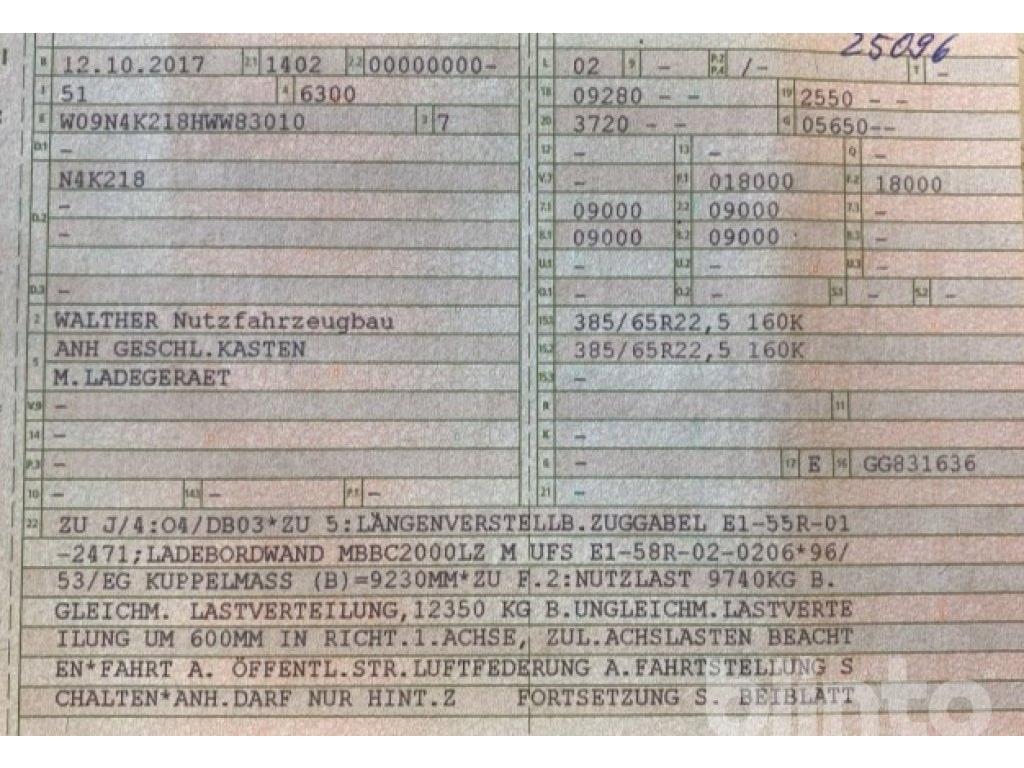 25096
B 12.10.2017 2.1 1402 2.2 00000000- L 02 9 - P.2 P.4 /- T -
J 51 4 6300 18 09280 - - 19 2550 - -
E W09N4K218HWW83010 3 7 20 3720 - - G 05650--
D.1 - 12 - 13 - Q -
N4K218 V.7 - F.1 018000 F.2 18000
D.2 - 7.1 09000 7.2 09000 7.3 -
- 8.1 09000 8.2 09000 8.3 -
U.1 - U.2 - U.3 -
D.3 - O.1 - O.2 - S.1 - S.2 -
2 WALTHER Nutzfahrzeugbau 15.1 385/65R22,5 160K
5 ANH GESCHL.KASTEN 15.2 385/65R22,5 160K
M.LADEGERAET 15.3 -
V.9 - R 11
14 - K -
P.3 - 6 - 17 E 16 GG831636
10 - 14.1 - P.1 - 21 -
22 ZU J/4:O4/DB03*ZU 5:LÄNGENVERSTELLB.ZUGGABEL E1-55R-01
-2471;LADEBORDWAND MBBC2000LZ M UFS E1-58R-02-0206*96/
53/EG KUPPELMASS (B)=9230MM*ZU F.2:NUTZLAST 9740KG B.
GLEICHM. LASTVERTEILUNG,12350 KG B.UNGLEICHM.LASTVERTE
ILUNG UM 600MM IN RICHT.1.ACHSE, ZUL.ACHSLASTEN BEACHT
EN*FAHRT A. ÖFFENTL.STR.LUFTFEDERUNG A.FAHRTSTELLUNG S
CHALTEN*ANH.DARF NUR HINT.Z FORTSETZUNG S. BEIBLATT
olinto